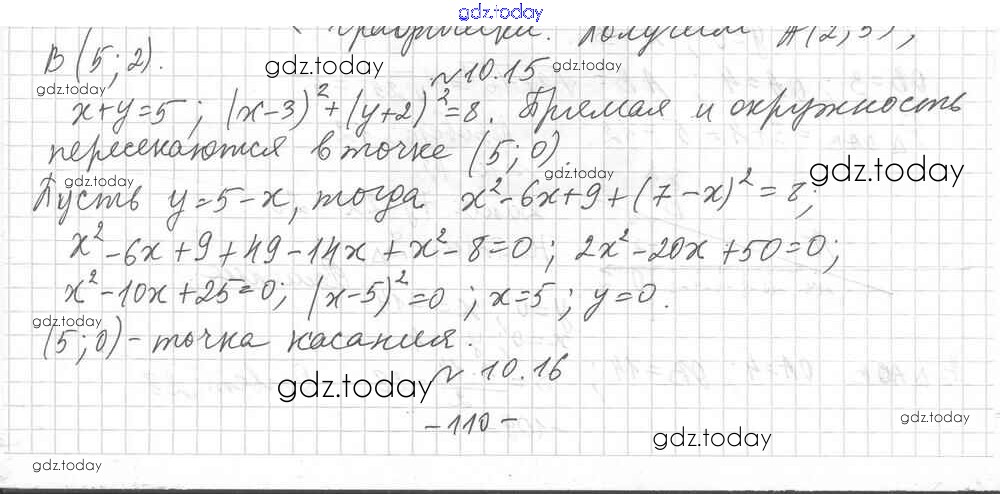 gdz.today
графически. Получим A(2;5),
B (5; 2).
gdz.today
gdz.today
№10.15
gdz.today
x+y=5; (x-3)²+(y+2)²=8. Прямая и окружность
пересекаются в точке (5; 0).
gdz.today
gdz.today
gdz.today
Пусть y=5-x, тогда x²-6x+9+(7-x)²=8;
x²-6x+9+49-14x+x²-8=0; 2x²-20x+50=0;
x²-10x+25=0; (x-5)²=0; x=5; y=0.
gdz.today
(5; 0) - точка касания.
№ 10.16
gdz.today
-110-
gdz.today
gdz.today
gdz.today